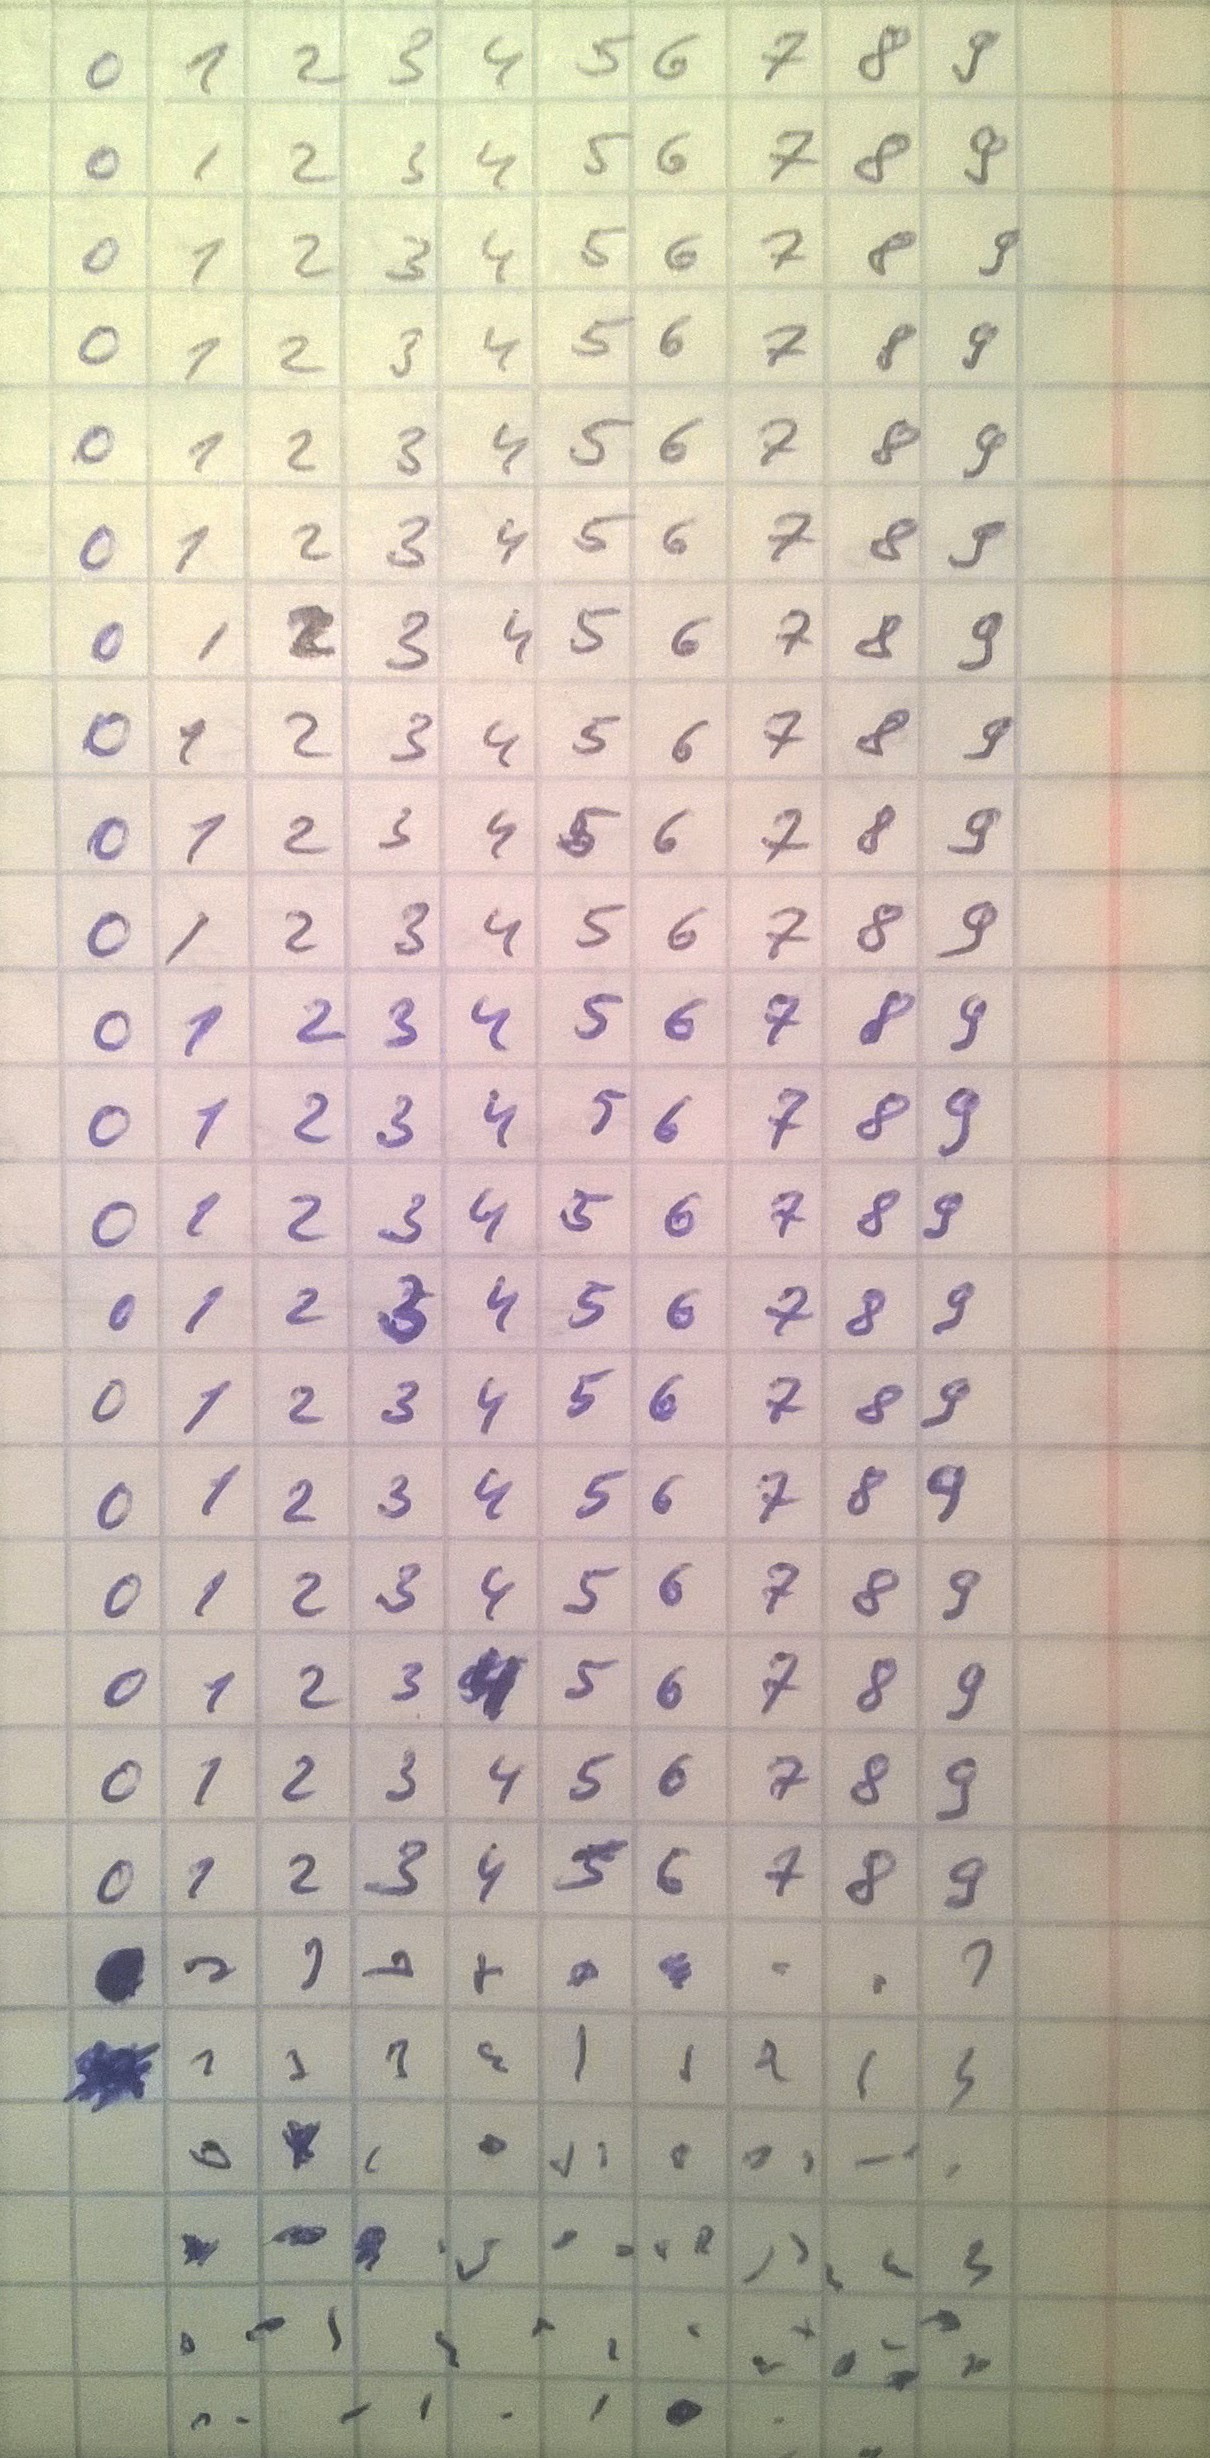 0 1 2 3 4 5 6 7 8 9
0 1 2 3 4 5 6 7 8 9
0 1 2 3 4 5 6 7 8 9
0 1 2 3 4 5 6 7 8 9
0 1 2 3 4 5 6 7 8 9
0 1 2 3 4 5 6 7 8 9
0 1 2 3 4 5 6 7 8 9
0 1 2 3 4 5 6 7 8 9
0 1 2 3 4 5 6 7 8 9
0 1 2 3 4 5 6 7 8 9
0 1 2 3 4 5 6 7 8 9
0 1 2 3 4 5 6 7 8 9
0 1 2 3 4 5 6 7 8 9
0 1 2 3 4 5 6 7 8 9
0 1 2 3 4 5 6 7 8 9
0 1 2 3 4 5 6 7 8 9
0 1 2 3 4 5 6 7 8 9
0 1 2 3 4 5 6 7 8 9
0 1 2 3 4 5 6 7 8 9
0 1 2 3 4 5 6 7 8 9